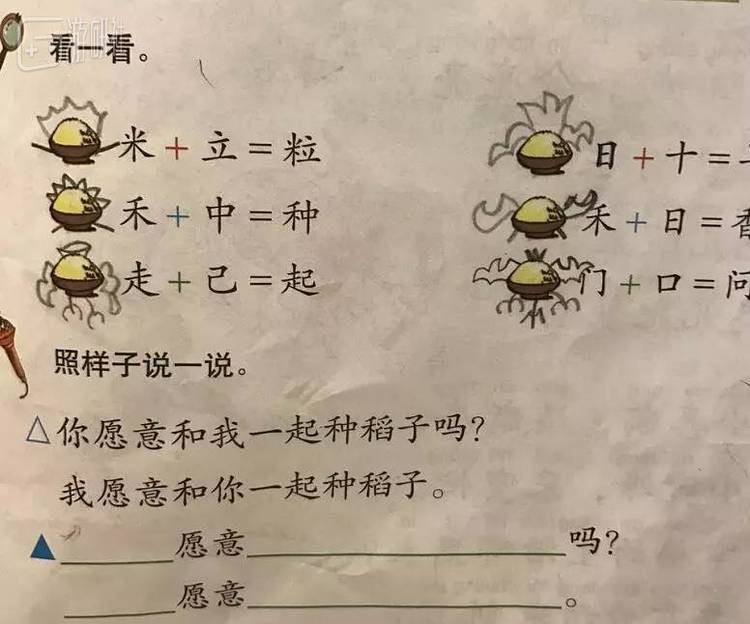 游研社
看一看。
米+立=粒 日+十=
禾+中=种 禾+日=香
走+己=起 门+口=问
照样子说一说。
△你愿意和我一起种稻子吗?
我愿意和你一起种稻子。
▲______愿意________________吗?
______愿意________________。